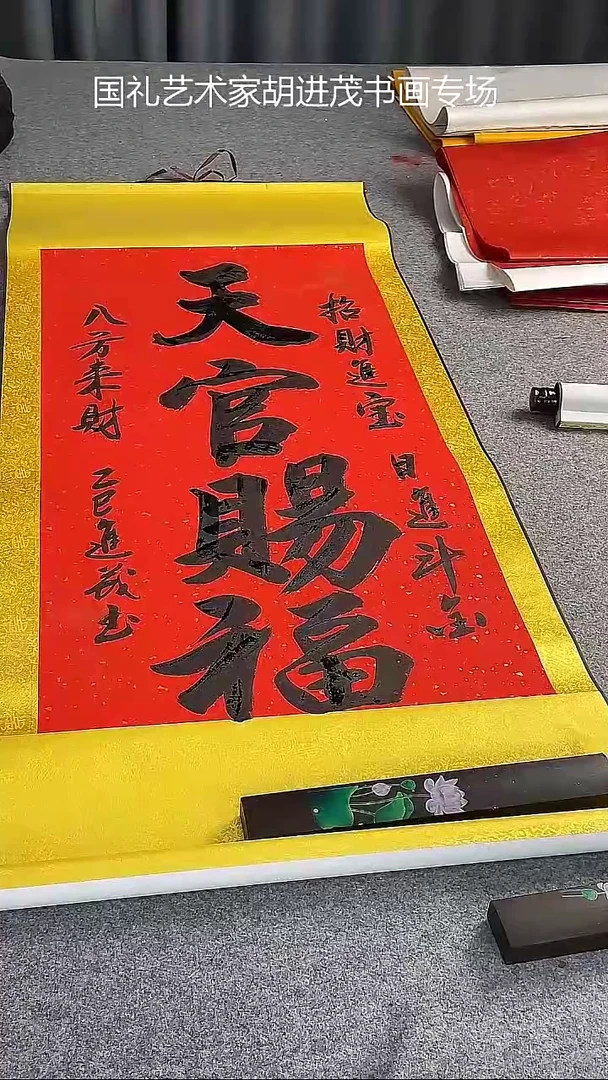 国礼艺术家胡进茂书画专场
招財進宝
日進斗金
天官賜福
八方来財
乙巳進茂书